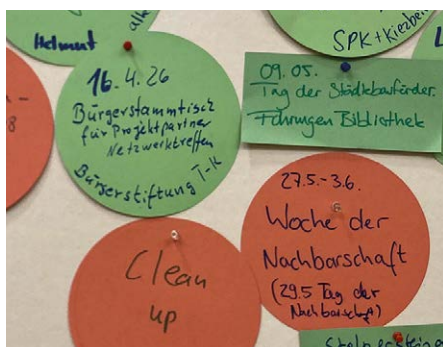 Helmut
SPK + Kiezbei
16.4.26
Bürgerstammtisch
für Projektpartner
Netzwerktreffen
Bürgerstiftung T-K
09.05.
Tag der Städtebauförder.
Führungen Bibliothek
27.5.-3.6.
Woche der
Nachbarschaft
(29.5 Tag der
Nachbarschaft)
Clean
up